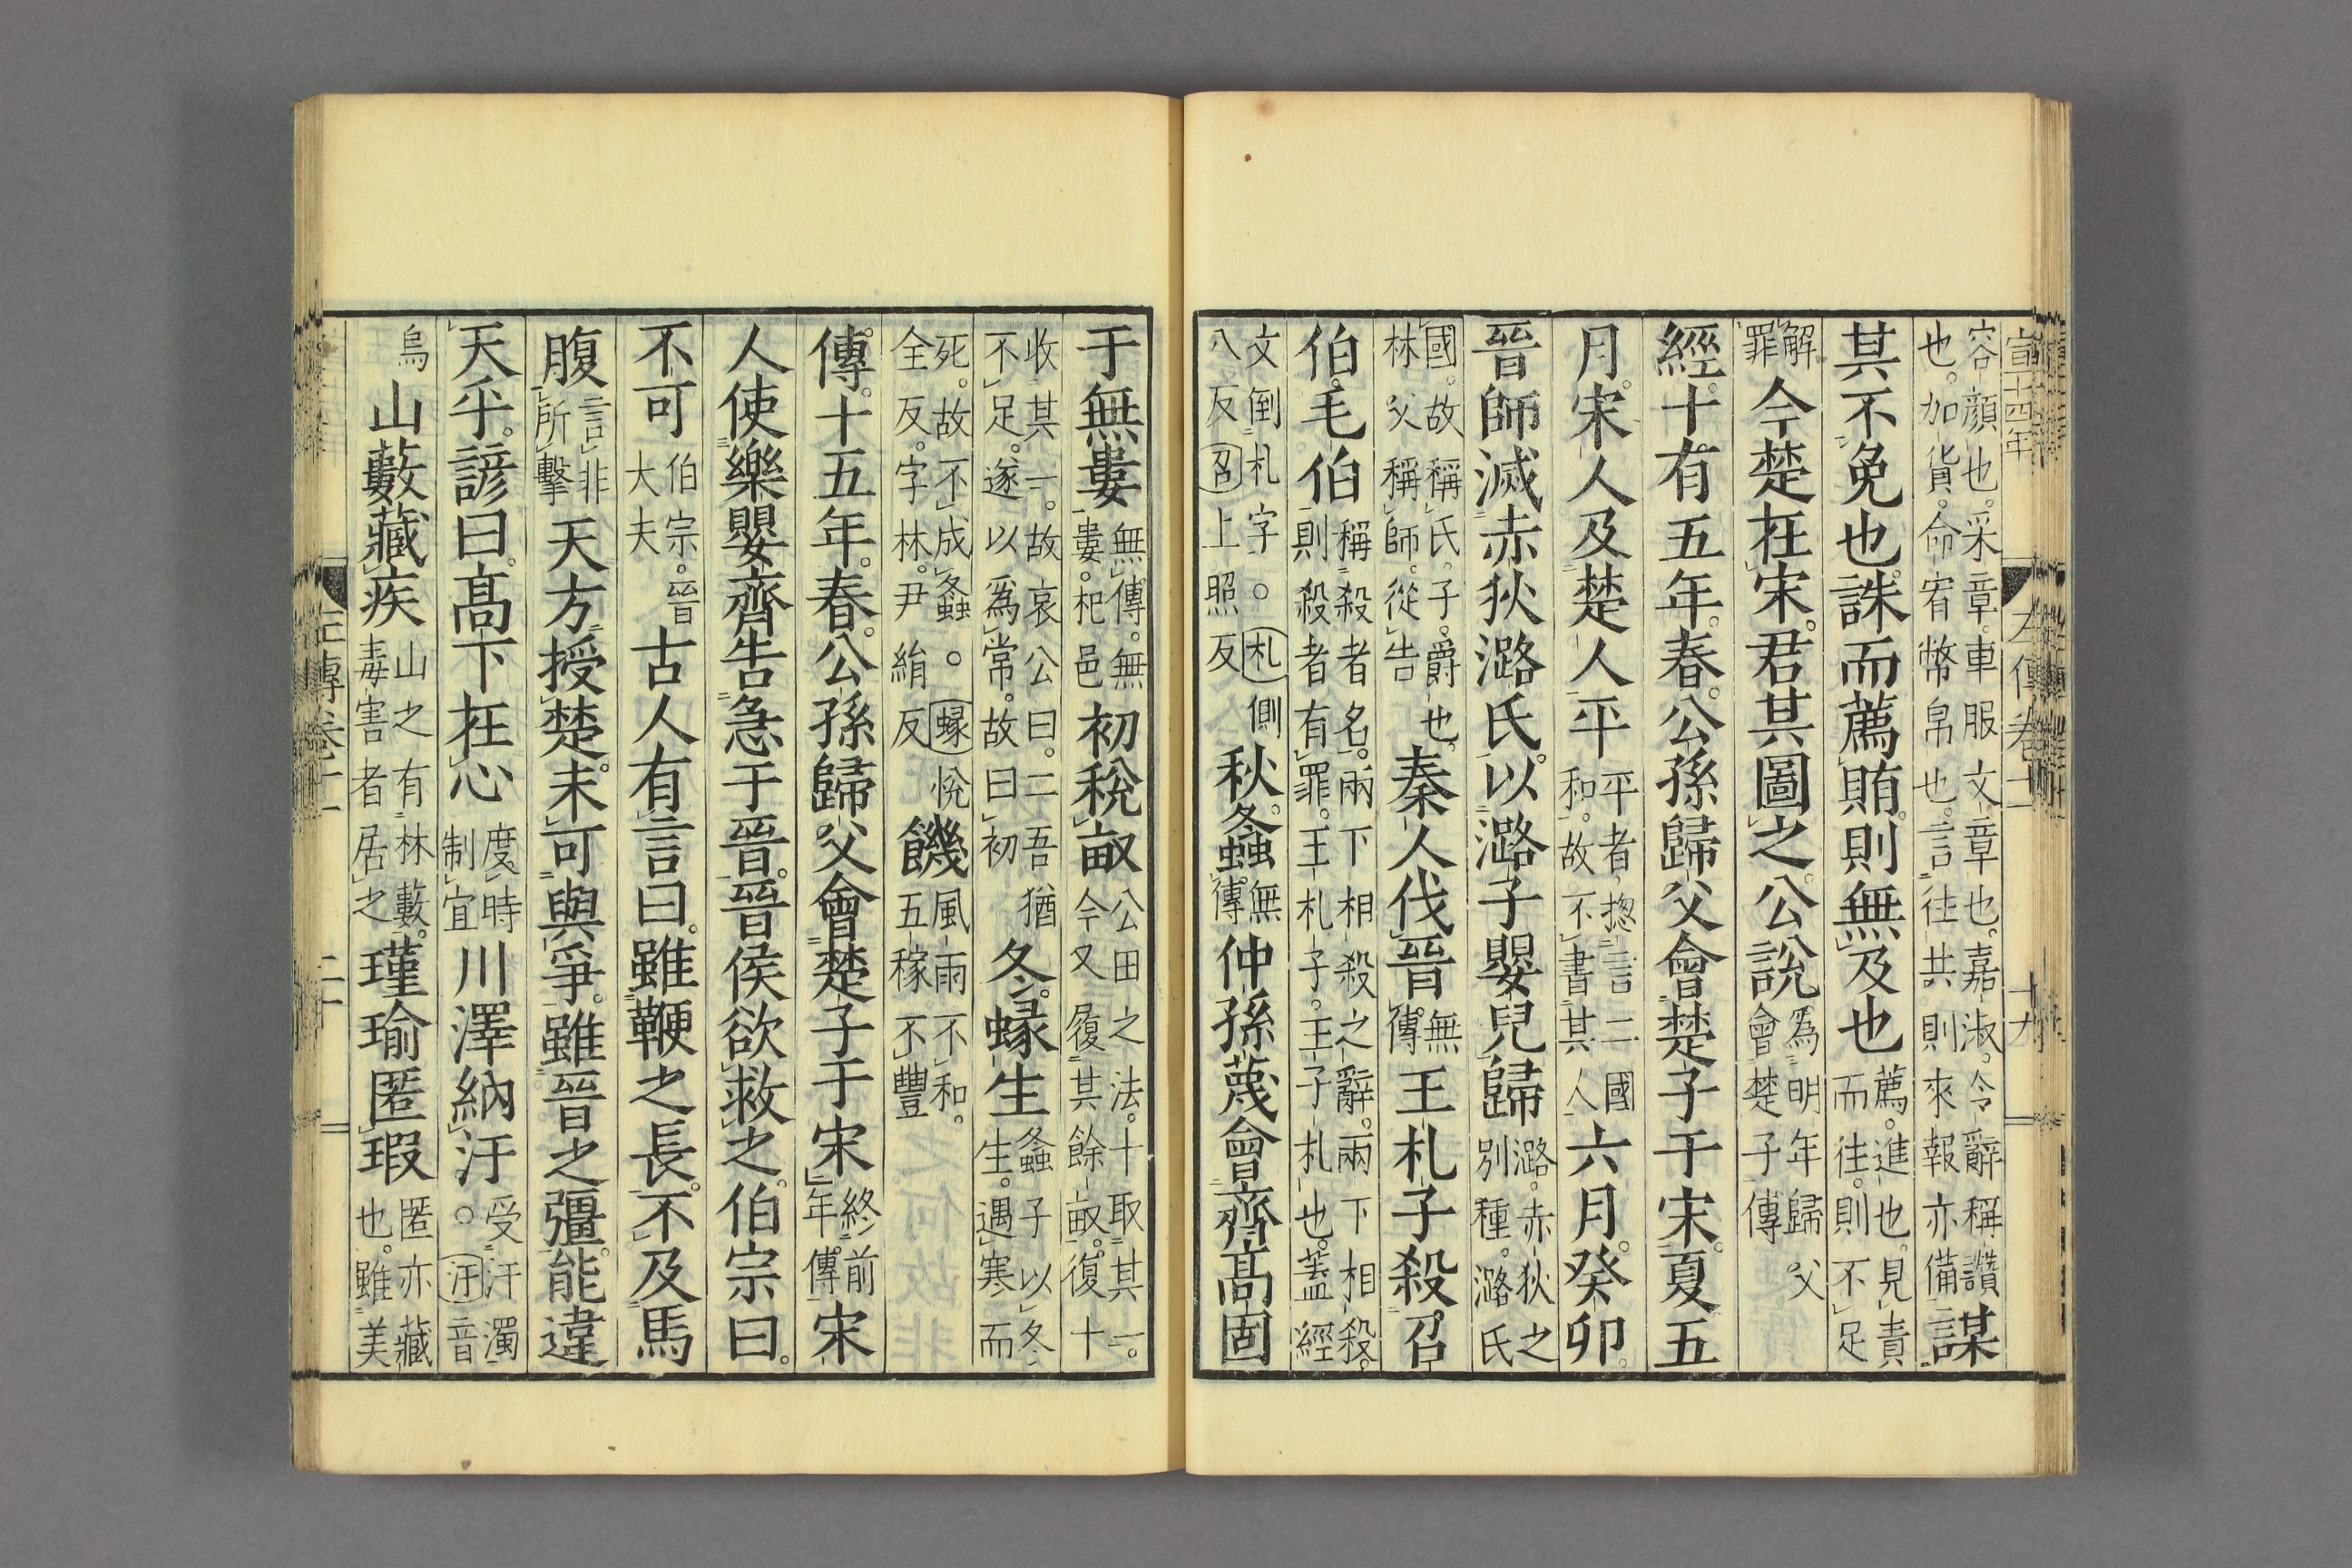 宣十四年 左傳卷十一 十九
容顏也。采章。車服文章也。嘉淑。令辭稱讚也。加貨。命宥幣帛也。言往共則來報亦備謀
其不免也。誅而薦賄。則無及也薦。進也。見責而往。則不足
解罪今楚在宋。君其圖之。公說為明年歸父會楚子傳
經。十有五年。春。公孫歸父會楚子于宋。夏五
月。宋人及楚人平平者。揔言二國和。故不書其人六月。癸卯。
晉師滅赤狄潞氏。以潞子嬰兒歸潞。赤狄之別種。潞氏
國。故稱氏。子。爵也。林父稱師。從告秦人伐晉。無傳王札子殺召
伯。毛伯稱殺者名。兩下相殺之辭。兩下相殺。則殺者有罪。王札子。王子札也。蓋經
文倒札字。○札側八反召上照反秋。螽。無傳仲孫蔑會齊髙固
于無婁無傳。無婁。杞邑初稅畝公田之法。十取其一。今又履其餘畝。復十
收其一。故哀公曰。二吾猶不足。遂以爲常。故曰初冬。蝝生螽子以冬生。遇寒而
死。故不成螽。○蝝悅全反。字林。尹絹反饑風雨不和。五稼不豐
傳。十五年。春。公孫歸父會楚子于宋終前年傳宋
人使樂嬰齊告急于晉。晉侯欲救之。伯宗曰。
不可伯宗。晉大夫古人有言曰。雖鞭之長。不及馬
腹言非所擊天方授楚。未可與爭。雖晉之彊。能違
天乎。諺曰。髙下在心度時制宜川澤納汙受汙濁。○汙音
烏山藪藏疾山之有林藪。毒害者居之瑾瑜匿瑕匿亦藏也。雖美
左傳卷十一 二十